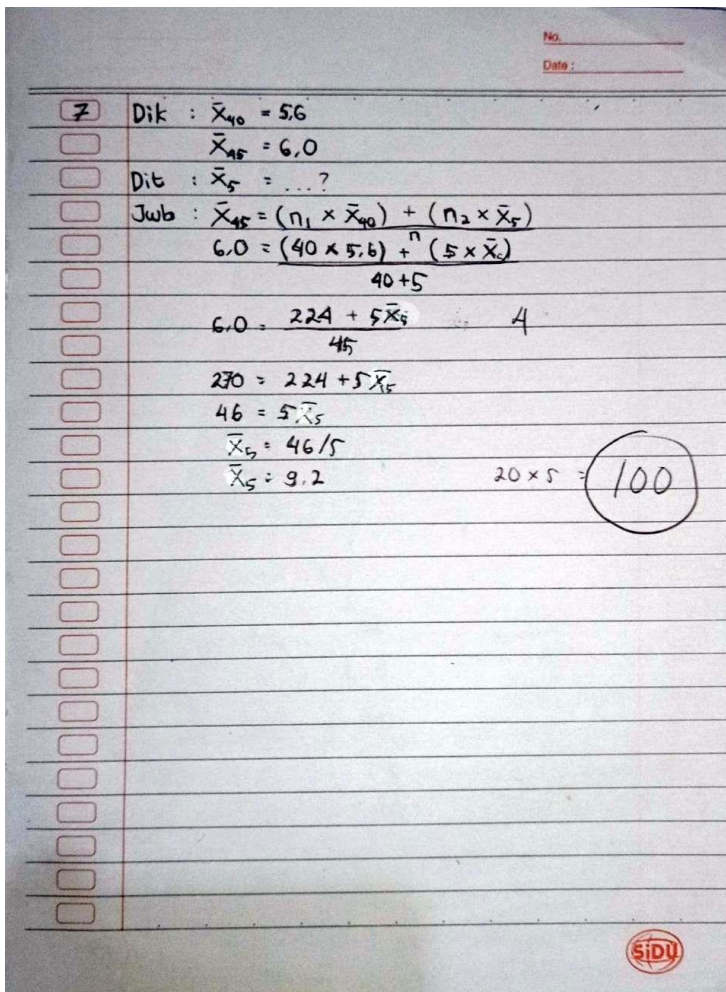 No.
Date :
7 Dik : x̄₄₀ = 5,6
x̄₄₅ = 6,0
Dit : x̄₅ = ...?
Jwb : x̄₄₅ = (n₁ × x̄₄₀) + (n₂ × x̄₅)
n
6,0 = (40 × 5,6) + (5 × x̄₅)
40+5
6,0 = 224 + 5x̄₅ 4
45
270 = 224 + 5x̄₅
46 = 5x̄₅
x̄₅ = 46/5
x̄₅ = 9,2 20 × 5 = 100
SiDU